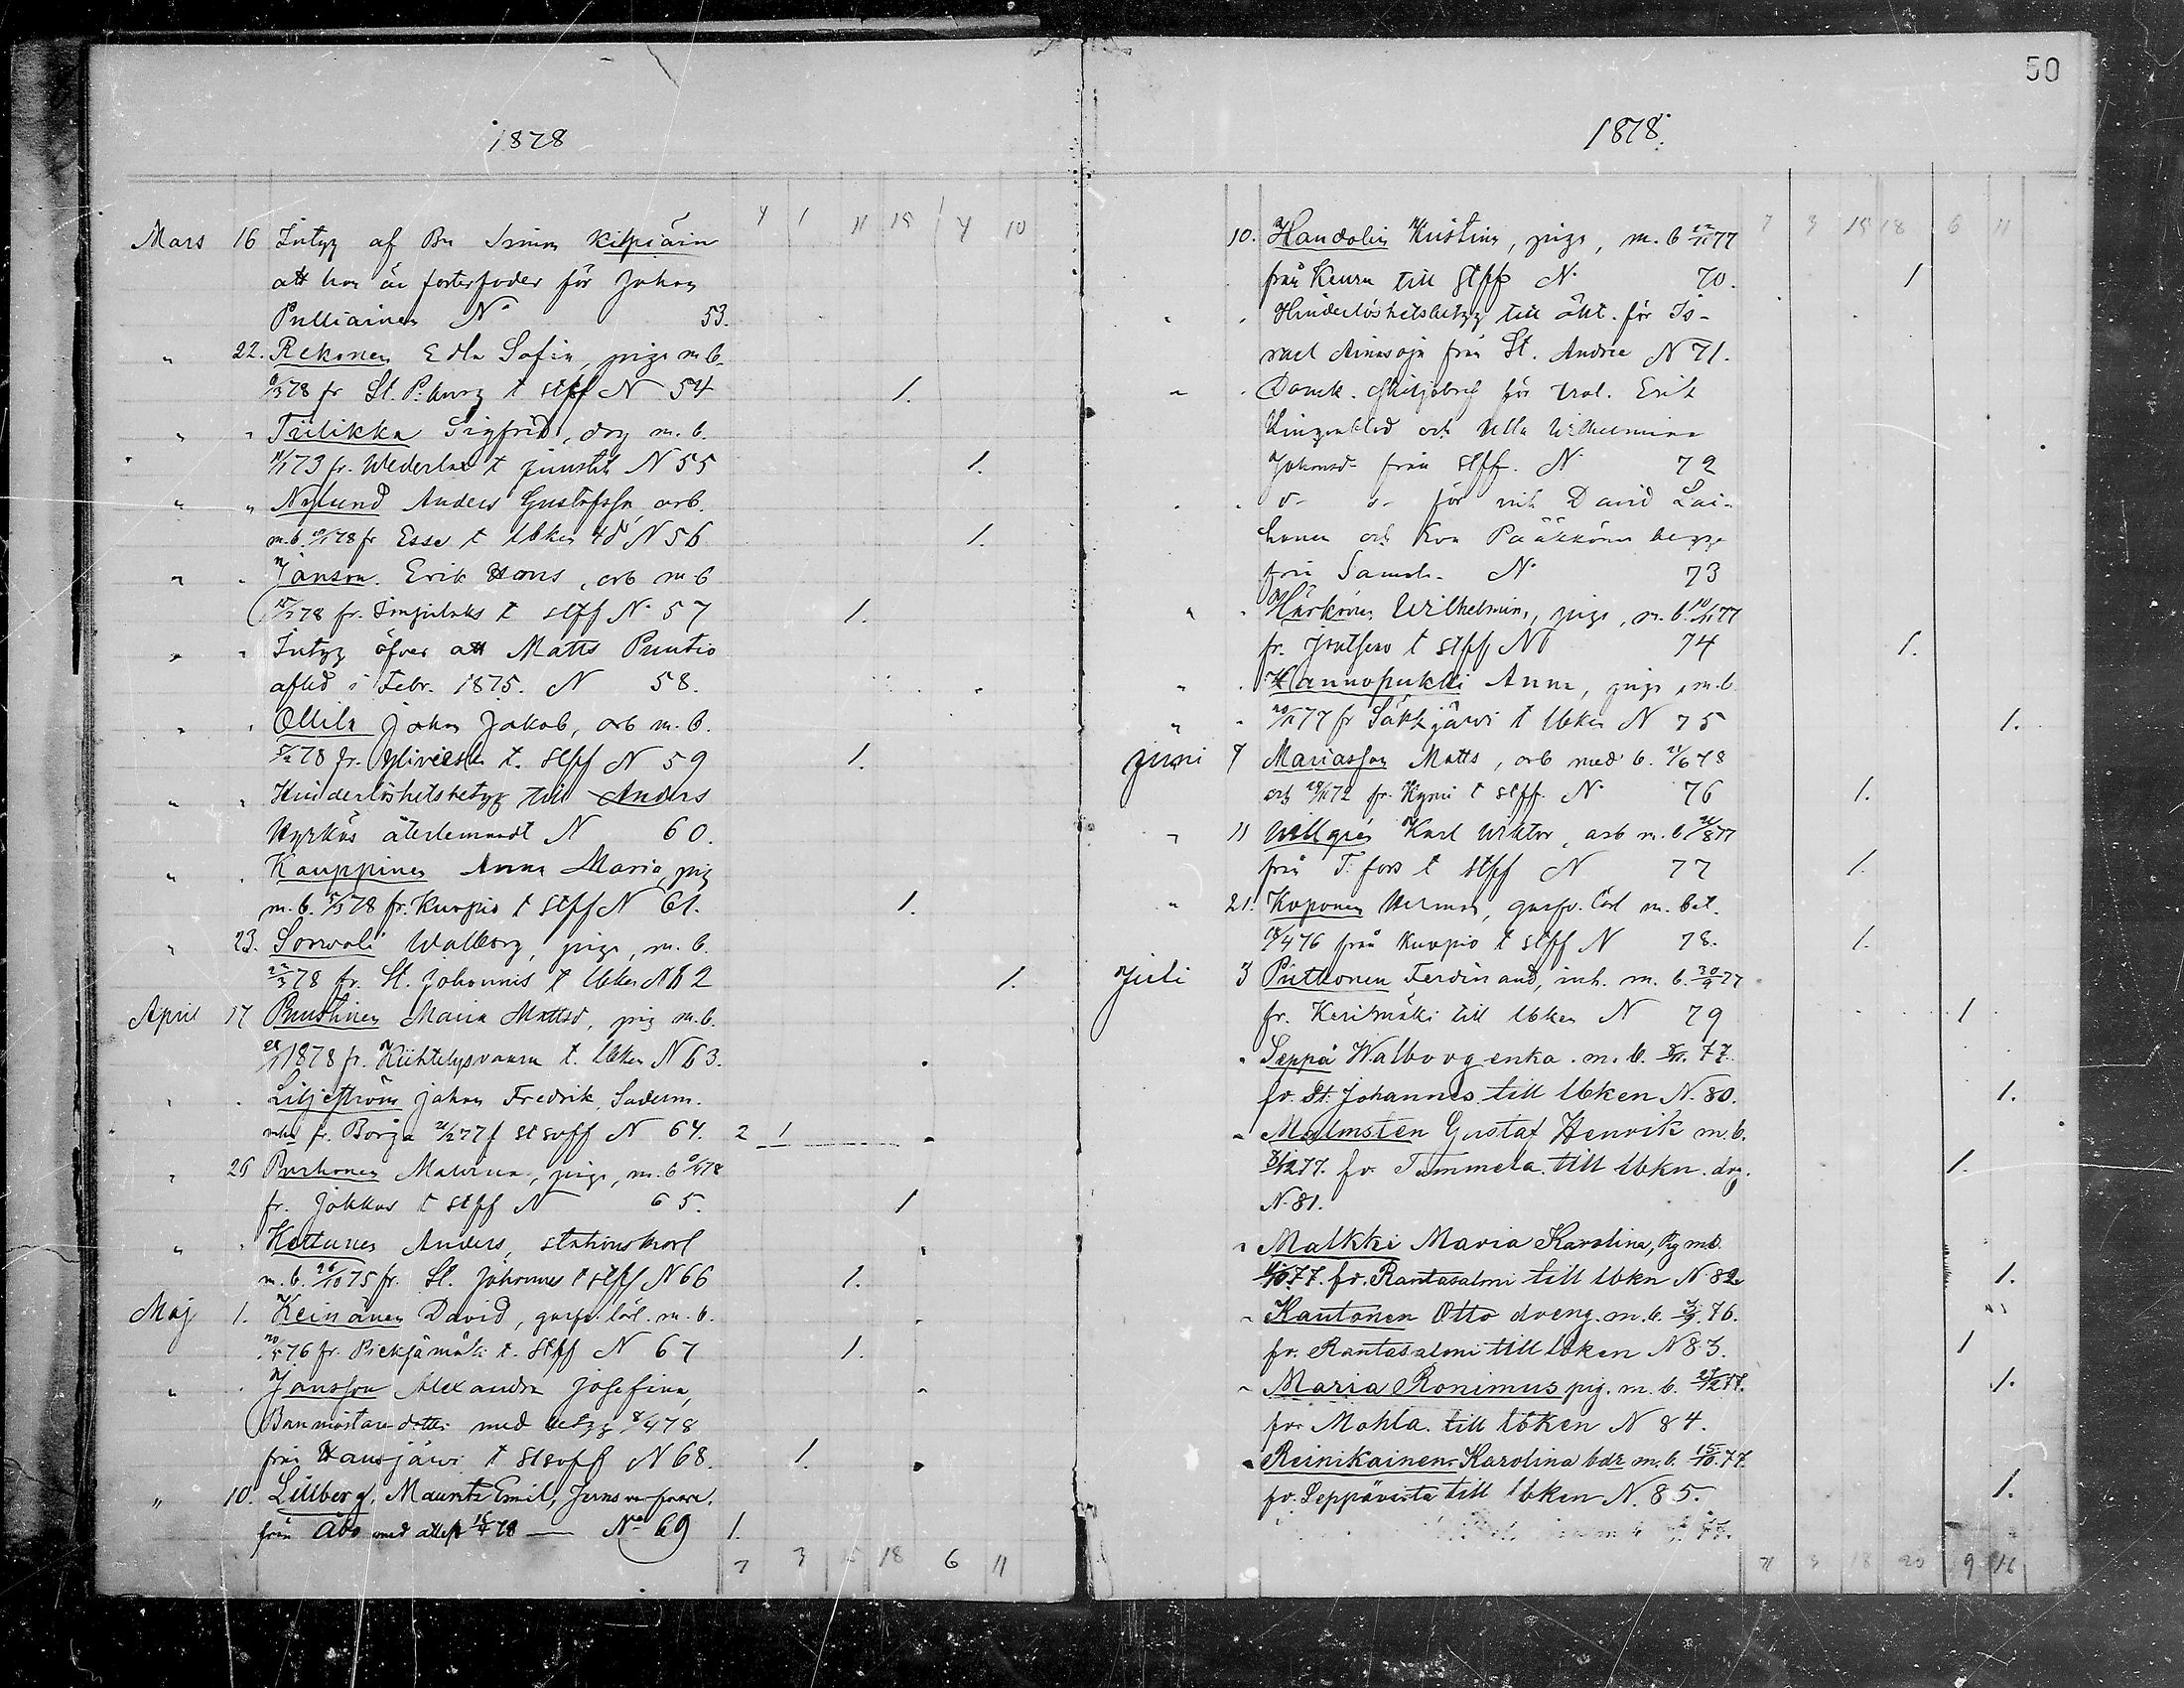 1878
4 1 11 15 4 10
Mars 16 Intyg af Bn Simon Kilpiäin
att han är fosterfader för Johan
Pulliainen No 53.
" 22. Rekonen Edla Sofia, piga m b.
/3 78 fr St. P:burg t stff N 54
" " Tiilikka Sigfrid, drg m. b.
11/1 73 fr. Wederlax t N 55
" " Nylund Anders Gustafsson, arb.
m. b. /1 78 fr Esse t lbken N 56
" " Janson Erik Hans, arb m b
15/2 78 fr. Impilaks t stff No 57
" " Intyg öfver att Matts Puutio
afled i Febr. 1875. N 58.
" " Ollila Johan Jakob, arb m. b.
5/2 78 fr. Ylivieska t. stff N 59
" " Hinderlöshetsbetyg till Anders
Hyrkäs återlemnadt N 60.
" " Kauppinen Anna Maria, pig
m. b. 5/3 78 fr. Kuopio t stff N 61.
" 23. Sorvali Walborg, piga, m. b.
22/3 78 fr. St. Johannis t lbken N 62
April 17 Puustinen Maria Mattsd, pig m. b.
28/1 1878 fr. Kiihtelysvaara t. lbken N 63.
" " Liljeström Johan Fredrik,
fr. Borga 21/2 77 t st svff N 64. 2 1
" 25 Purhonen piga, m. b /1 78
fr. Jokkas t stff N 65.
" " Kettunen Anders, stationskarl
m. b. 26/10 75 fr. St. Johannes t stff N 66
Maj 1. Keinänen David, garfv. lärl. m. b.
20/5 76 fr. Pieksämäki t. stff N 67
" " Jansson Alexandra Josefina,
Banmästare dotter med betyg 8/4 78
från Hausjärvi t st svff N 68.
" 10. Lillberg, Mauritz Emil,
från Åbo med attest 15/4 78 — No 69 1.
7 3 15 18 6 11
50
1878.
7 3 15 18 6 11
10. Handolin Kristina, piga, m. b 12/11 77
från Keuru till stff No 70.
" " Hinderlöshetsbetyg till äkt. för Is-
rael Ainasoja från St. Andree N 71.
" " Domk. skiljobref för Erik
och Ulla Wilhelmina
Johansd. från stff. No 72
" " d- o- för inh David Lai-
honen och Eva Pääkkönen begge
från No 73
" " Härkönen Wilhelmina, piga, m. b. 10/11 77
fr. Joutseno t stff No 74
" " Hannopukki Anna, piga, m. b
" " 20/11 77 fr Säkkjärvi t lbken N 75
Juni 7 Mariasson Matts, arb med b. 21/6 78
och 29/11 72 fr. Kymi t stff. No 76
" 11 Willgren Karl Viktor, arb m. b 21/8 77
från T:fors t stff N 77
" 21. Koponen Herman, garfv. lärl m. bet.
18/4 76 från Kuopio t stff N 78.
Juli 3 Puttonen Ferdinand, inh. m. b. 30/9 77
fr. Kerimäki till lbken N 79
" Seppä Walborg enka. m. b. 8/11. 77.
fr. St. Johannes till lbken N. 80.
" Malmsten Gustaf Henrik m. b.
3/12 77. fr. Tammela. till lbkn. drg.
N. 81.
" Malkki Maria Karolina, Pig m b.
/10 77. fr. Rantasalmi till lbkn N. 82.
" Kautonen Otto dreng. m. b. 3/9. 76.
fr. Rantasalmi till lbken N 83.
" Maria Ronimus pig. m. b. 21/12 77.
fr. Mohla. till lbken N 84.
" Reinikainen Karolina bdr m. b. 15/10. 77.
fr. Leppävirta till lbken N. 85.
7 3 18 20 9 16